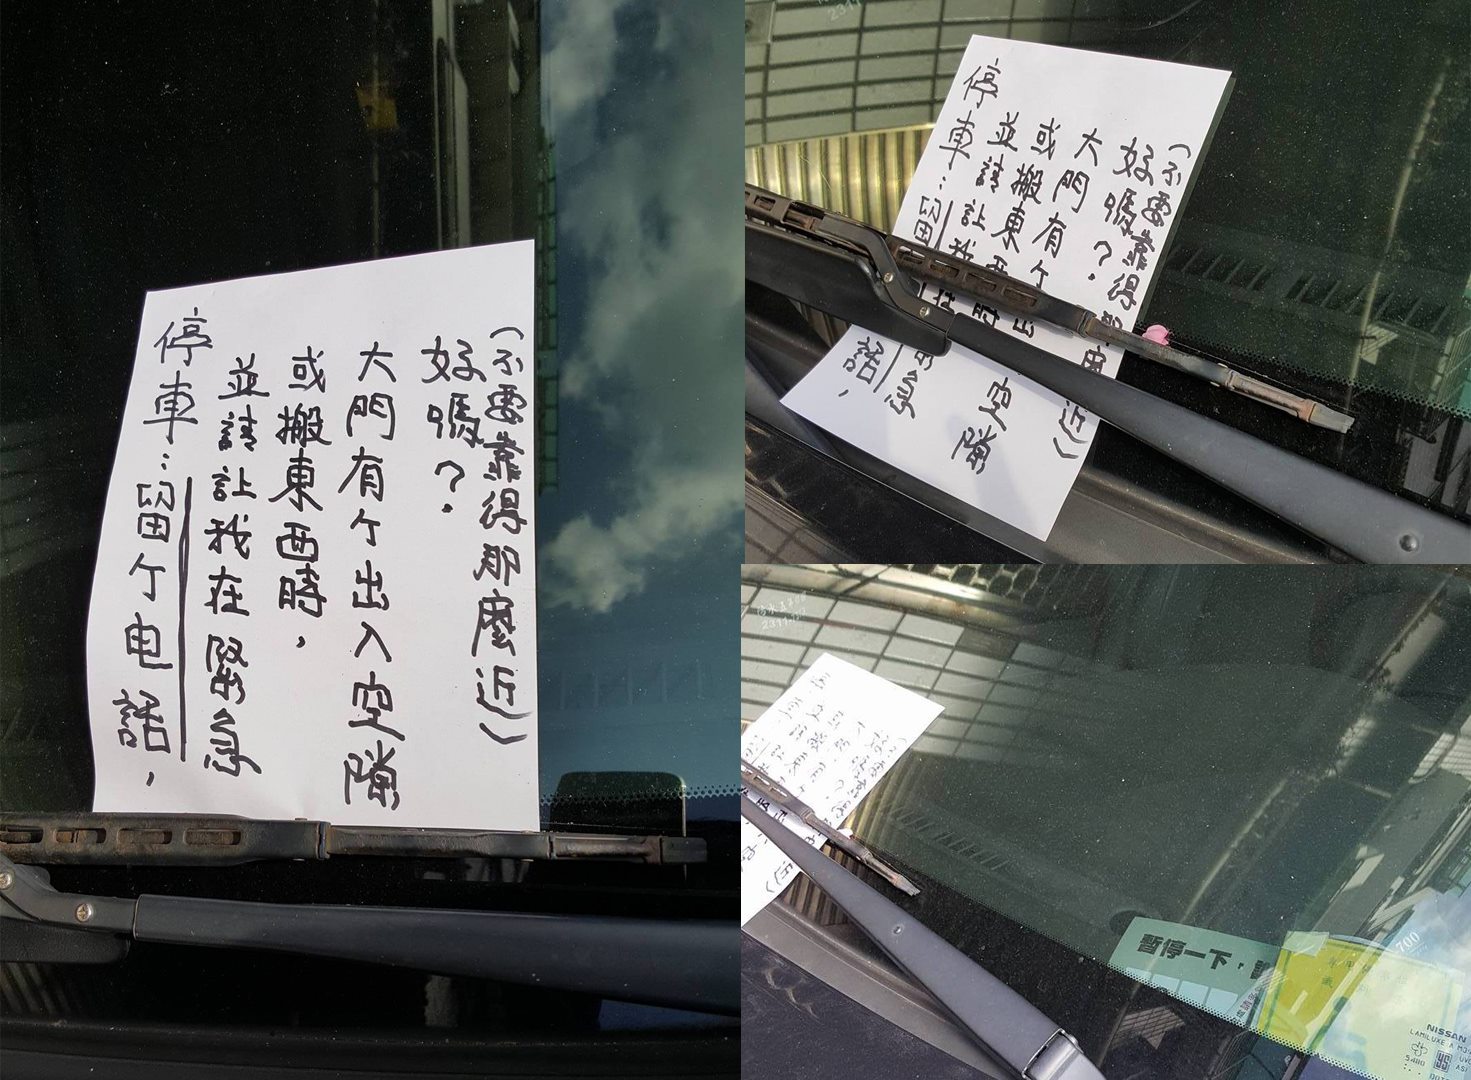 停車:留个电話,
並請让我在緊急
或搬東西時,
大門有个出入空隙
好嗎?
(不要靠得那麼近)
停車:留話,
並請让我急
或搬東西時
大門有个出空隙
好嗎?
(不要靠得那近)
暫停一下,
700
NISSAN